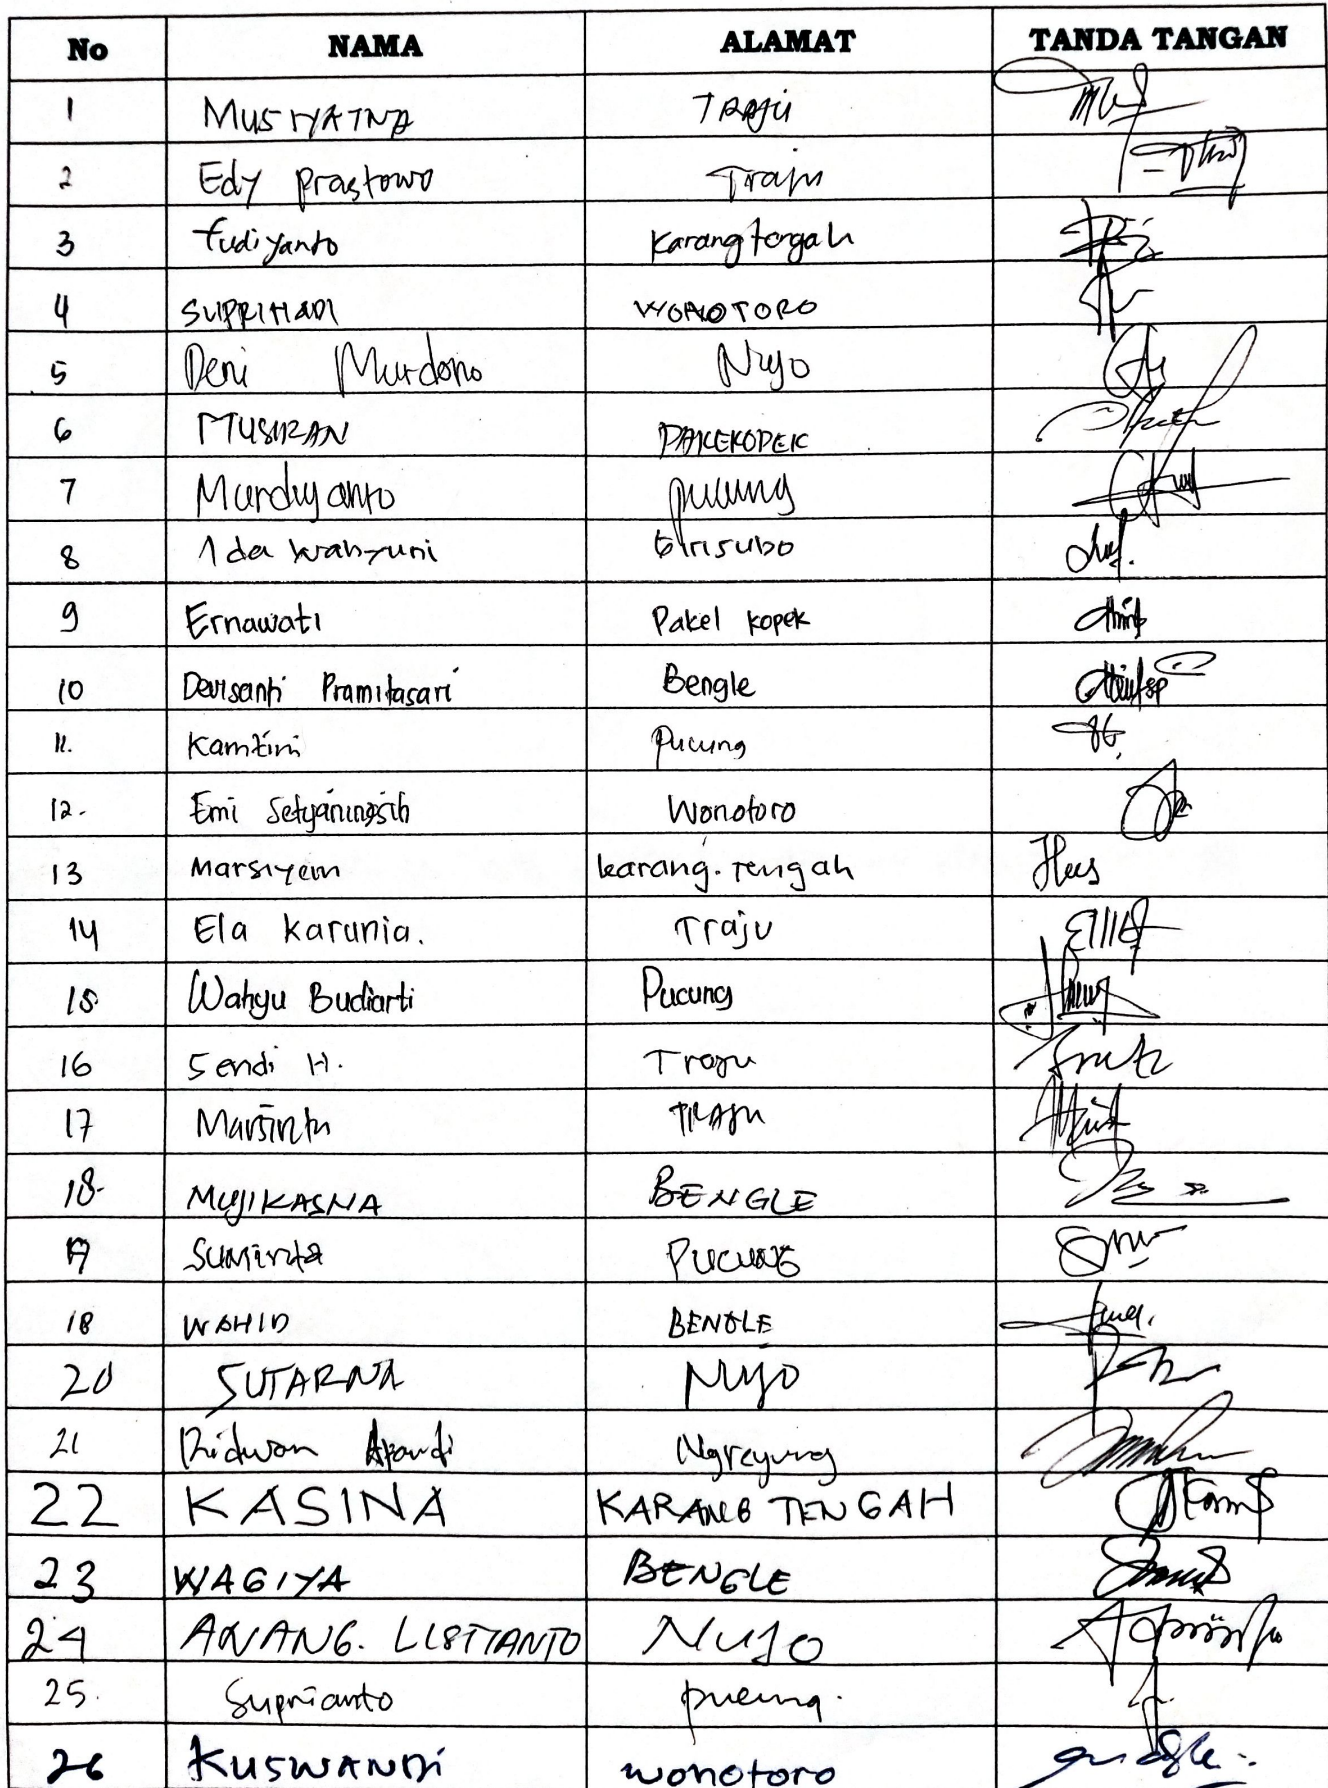 No NAMA ALAMAT TANDA TANGAN
1 MUSIYATNA TRAJU
2 Edy Prastowo Traju
3 Fudiyanto Karangtengah
4 SUPRIHADI WONOTORO
5 Deni Murdono Nujo
6 MUSIRAN PAKELKOPEK
7 Murdiyanto pucung
8 Ida Wahyuni Girisubo
9 Ernawati Pakel Kopek
10 Devisanti Pramitasari Bengle
11. Kamtini Pucung
12. Emi Setyaningsih Wonotoro
13 Marsiyem karang. Tengah
14 Ela Karunia. Traju
15 Wahyu Budiarti Pucung
16 Sendi H. Traju
17 TRAJU
18. MUJIKASNA BENGLE
19 Suminta PUCUNG
18 WAHID BENGLE
20 SUTARNA Nujo
21 Ridwan Apandi
22 KASINA KARANG TENGAH
23 WAGIYA BENGLE
24 ANANG. LISTIANTO NUJO
25. Suprianto pucung.
26 KUSWANDI wonotoro